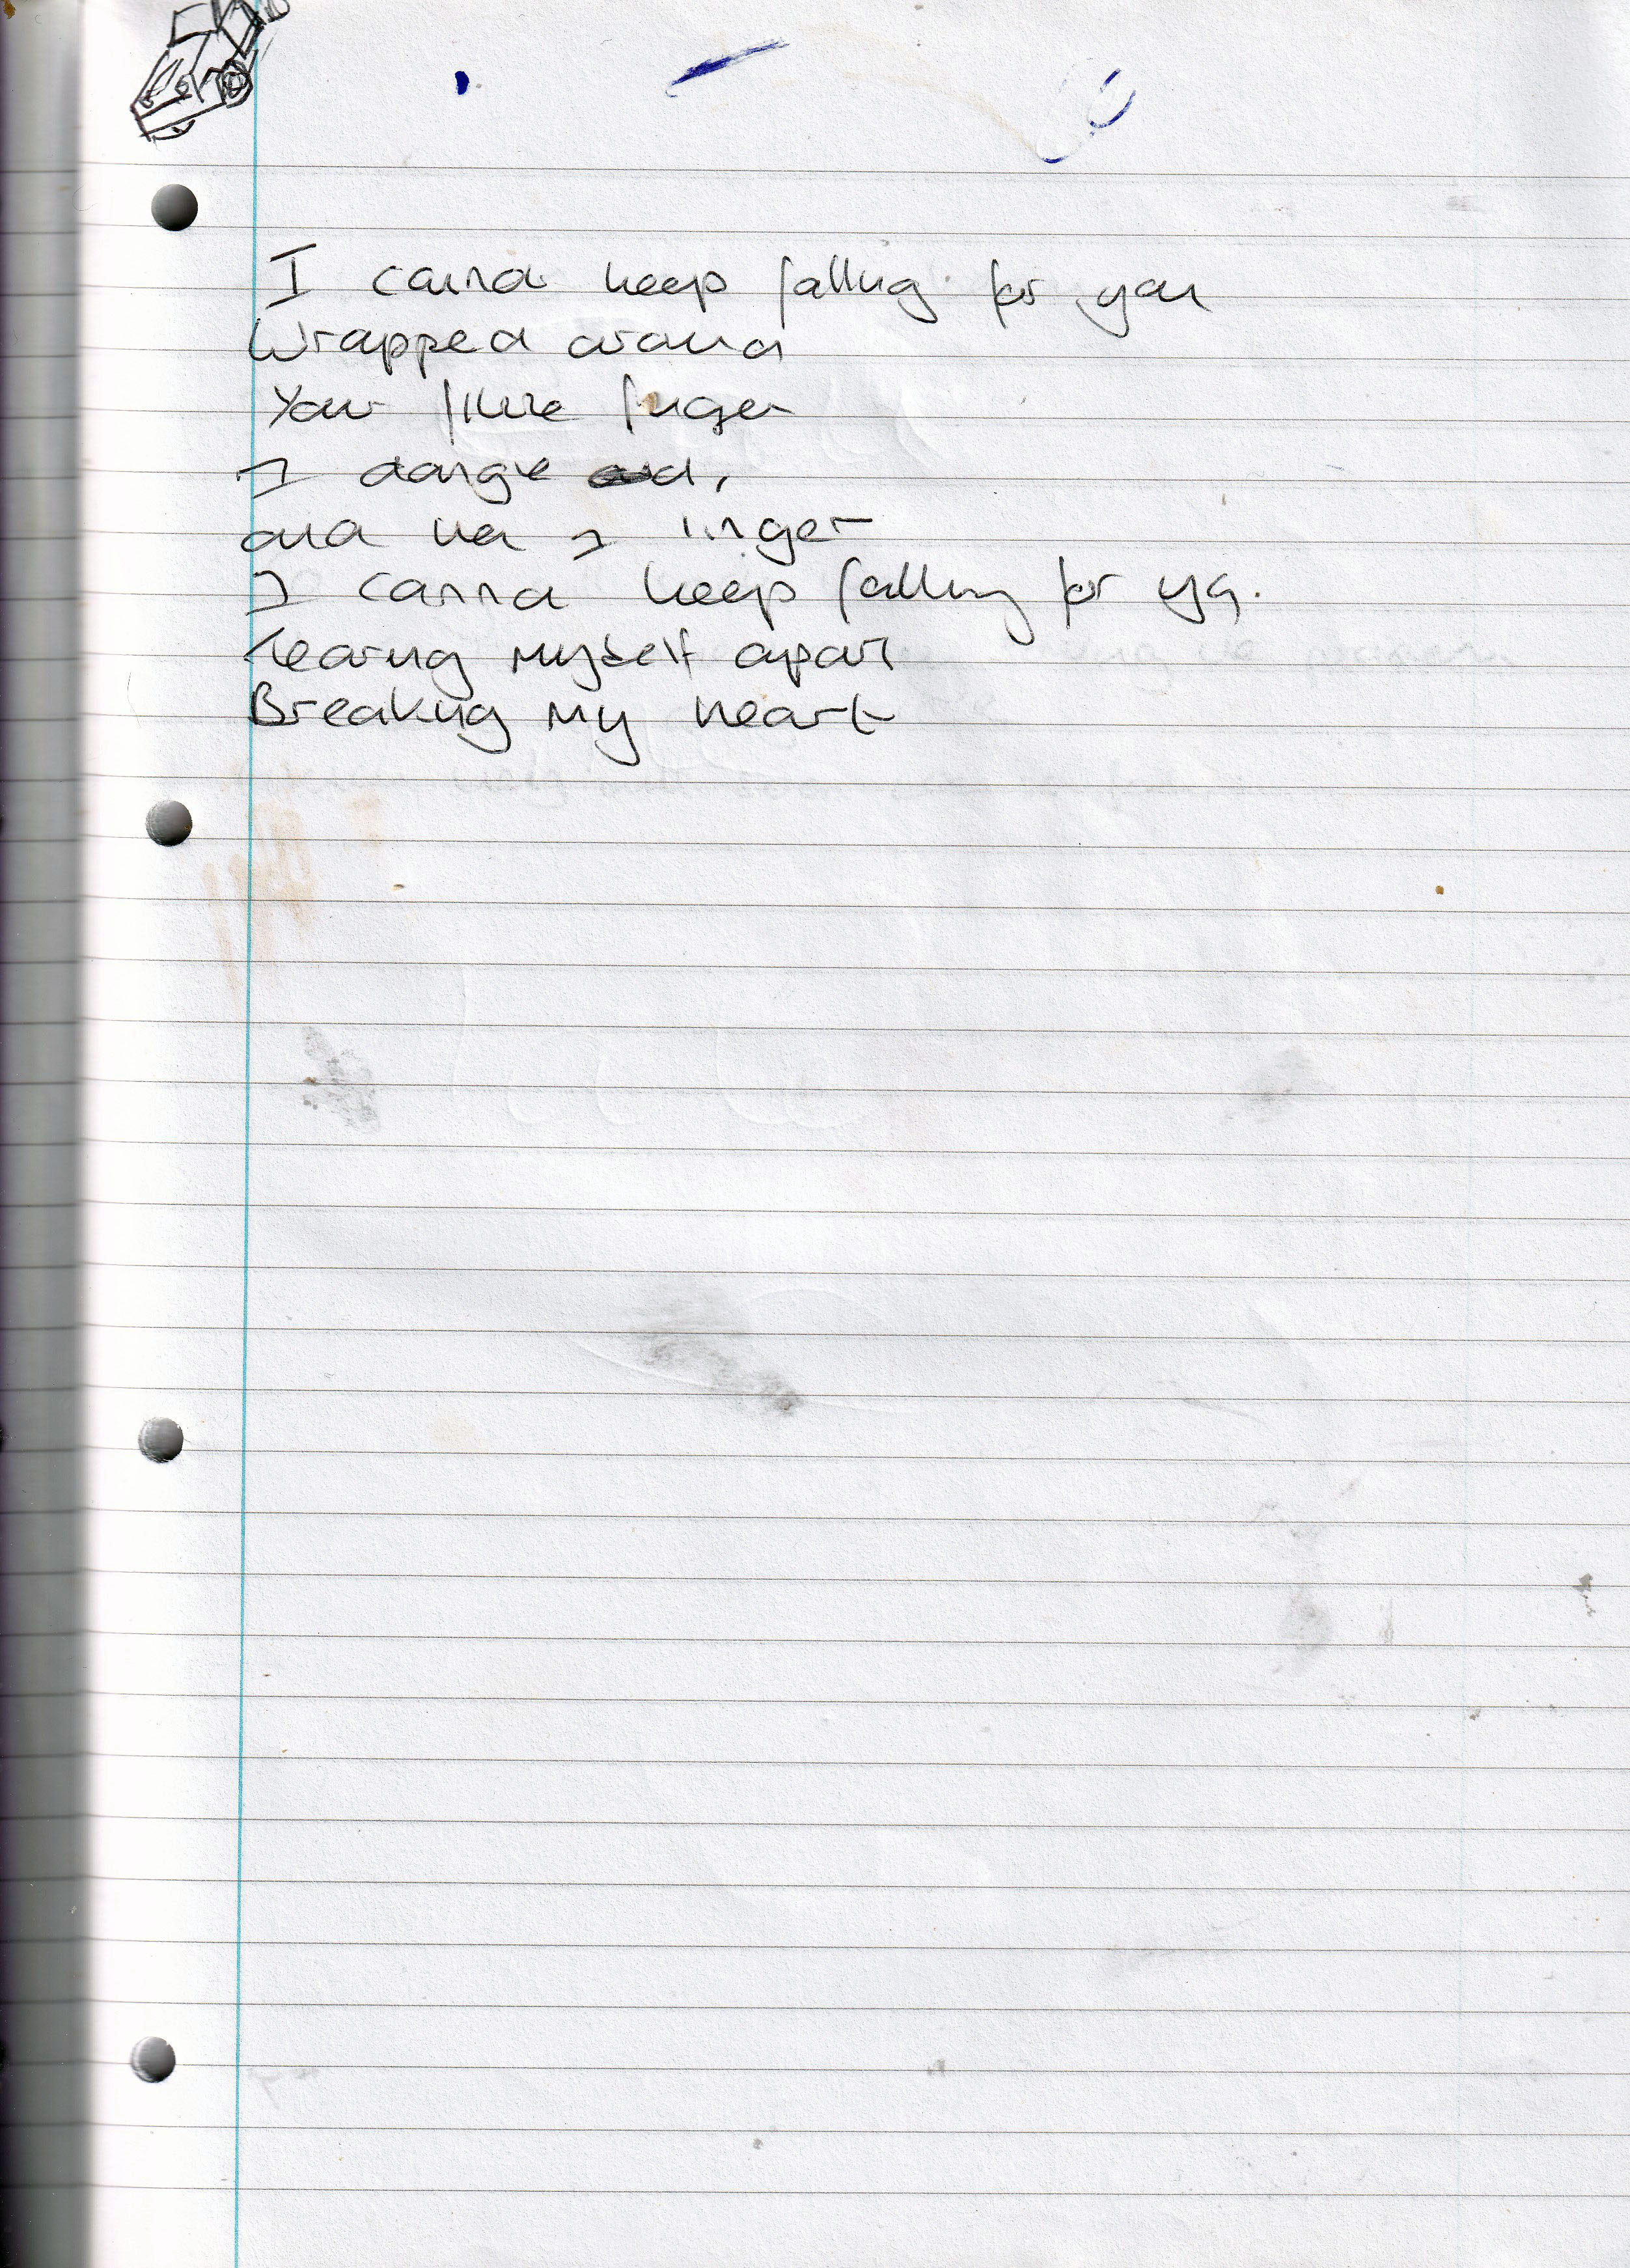 I cannot keep falling for you
Wrapped around
Your little finger
I dangle
and then I linger
I cannot keep falling for ya.
Tearing myself apart
Breaking my heart